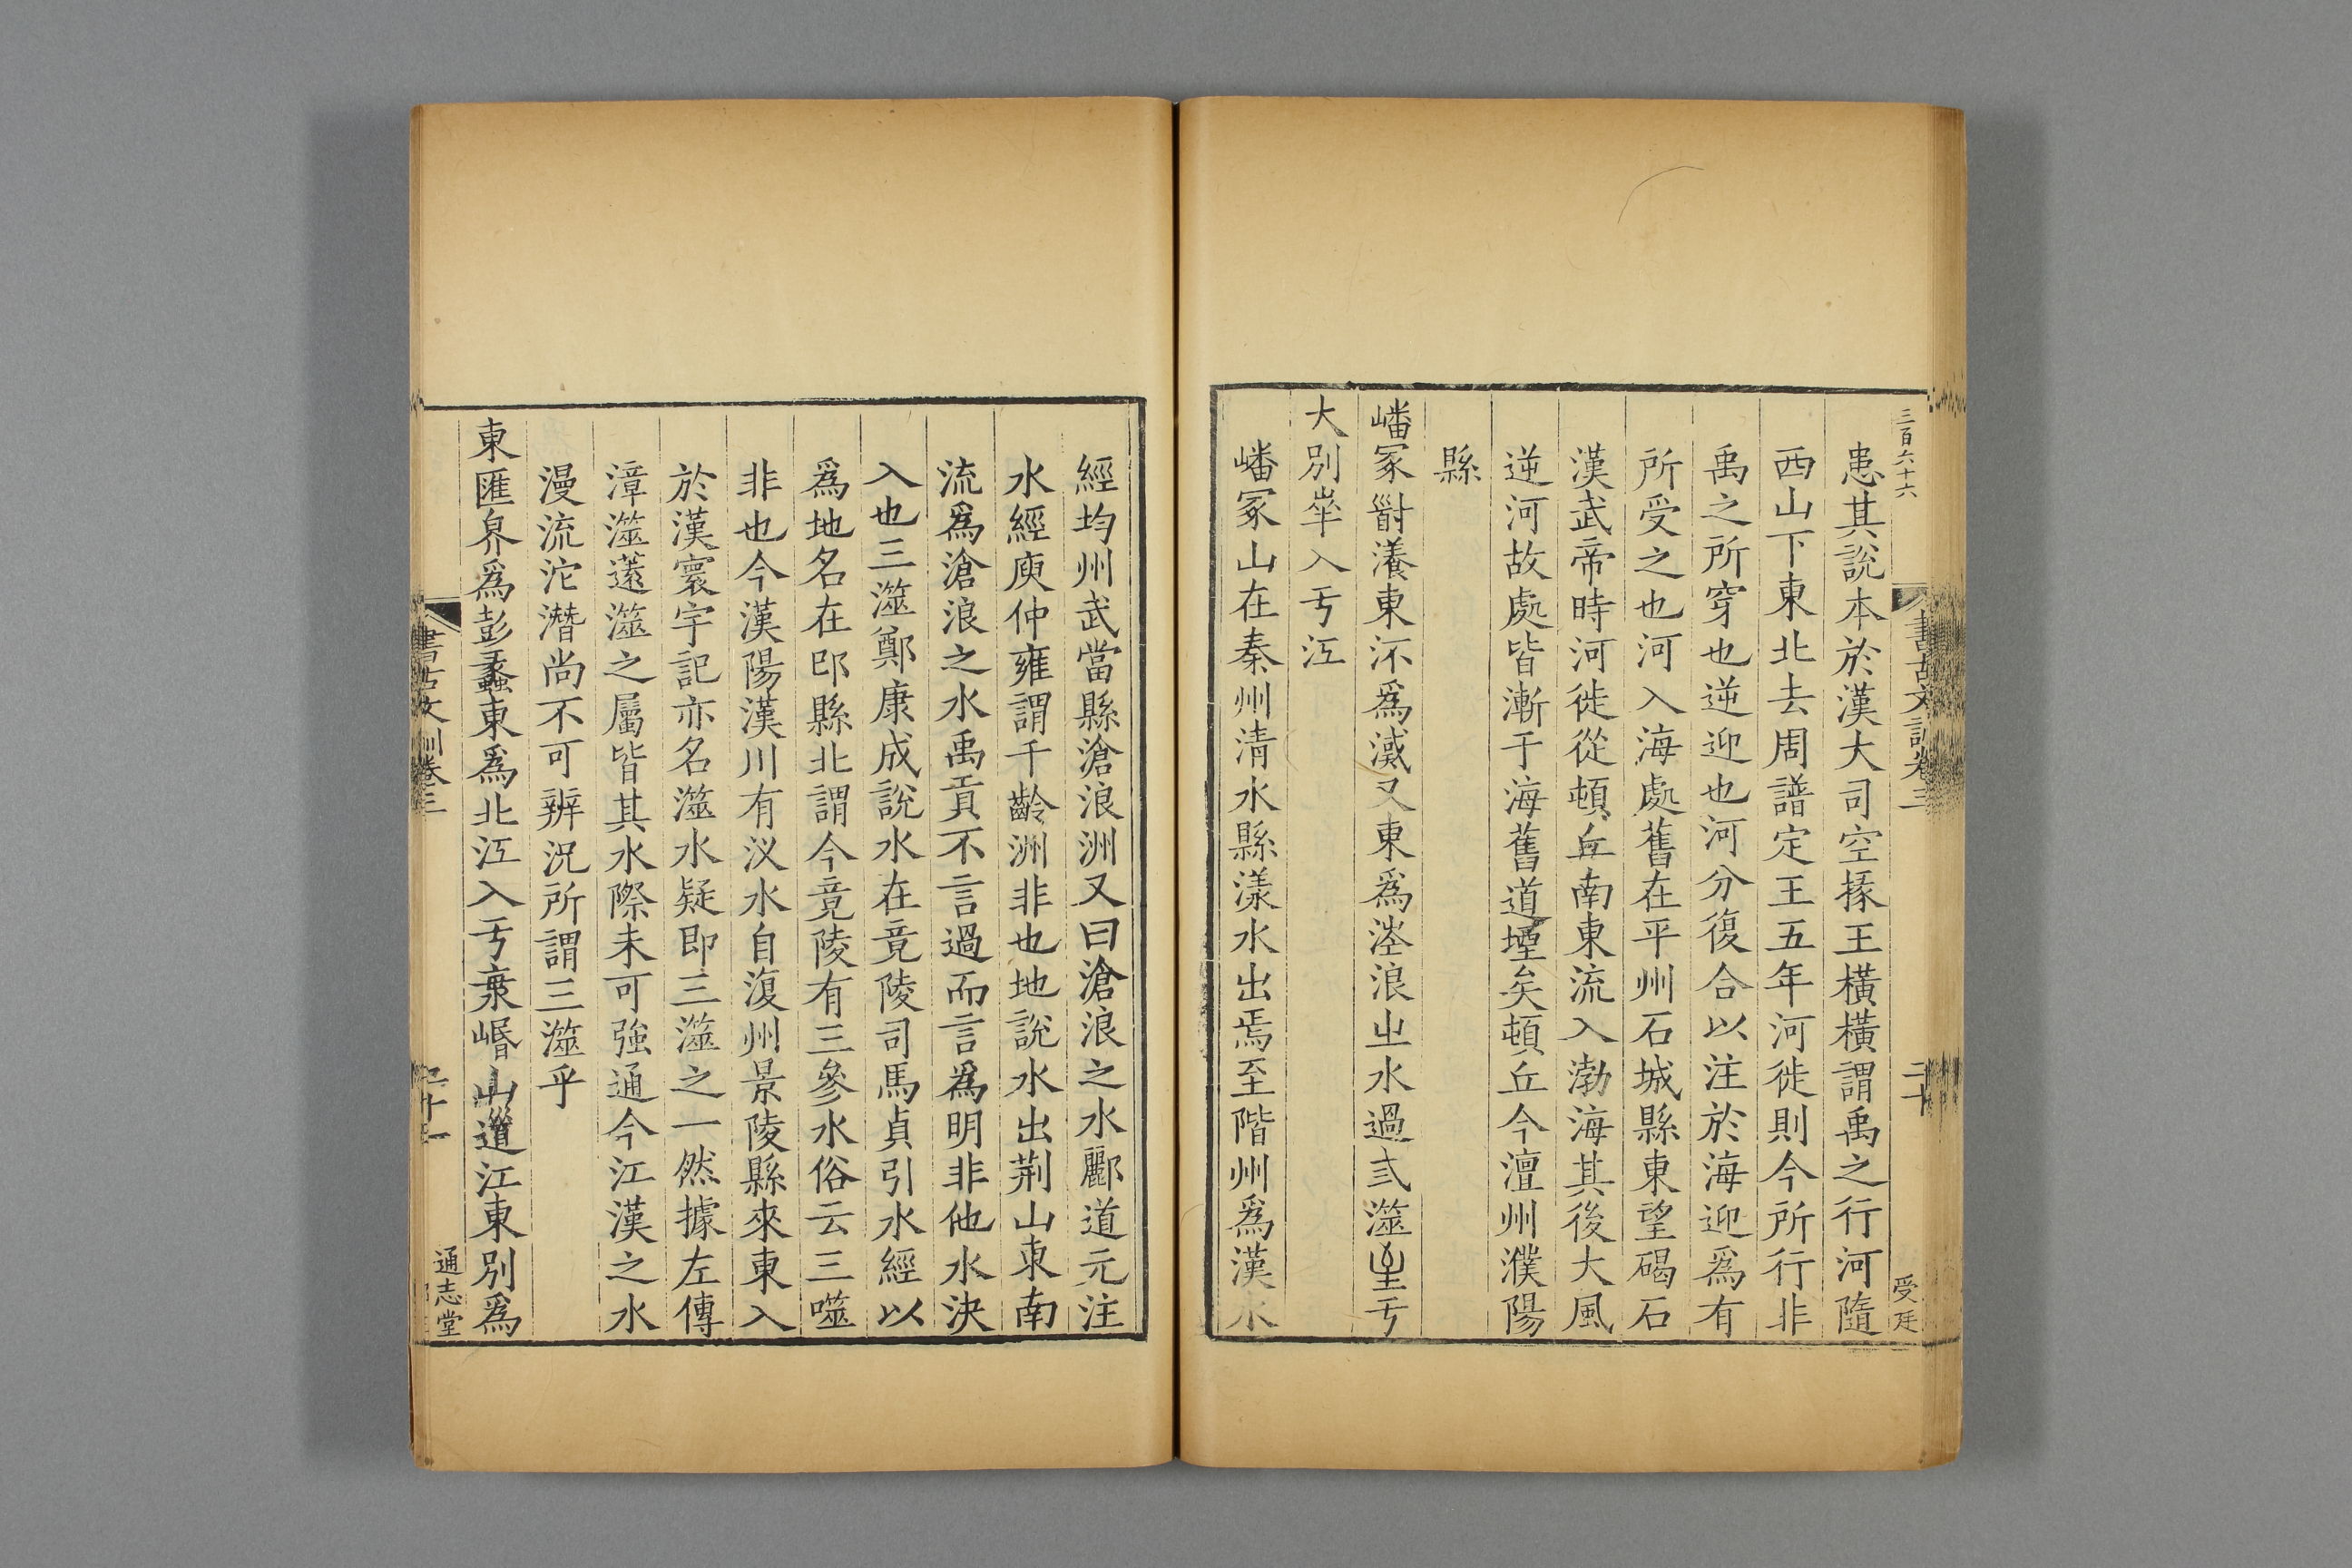 三百六十六
書古文訓卷三
二十
受廷
患其說本於漢大司空掾王橫橫謂禹之行河隨
西山下東北去周譜定王五年河徙則今所行非
禹之所穿也逆迎也河分復合以注於海迎爲有
所受之也河入海處舊在平州石城縣東望碣石
漢武帝時河徙從頓丘南東流入渤海其後大風
逆河故處皆漸于海舊道堙矣頓丘今澶州濮陽
縣
嶓冢𡭊瀁東㳅爲㵄又東爲㳡浪㞢水過弎澨𡉉亐
大別𡴹入亐㳂
嶓冢山在秦州清水縣漾水出焉至階州爲漢水
經均州武當縣滄浪洲又曰滄浪之水酈道元注
水經庾仲雍謂千齡洲非也地說水出荆山東南
流爲滄浪之水禹貢不言過而言爲明非他水決
入也三澨鄭康成說水在竟陵司馬貞引水經以
爲地名在邔縣北謂今竟陵有三參水俗云三噬
非也今漢陽漢川有汊水自復州景陵縣來東入
於漢寰宇記亦名澨水疑即三澨之一然據左傳
漳澨薳澨之屬皆其水際未可強通今江漢之水
漫流沱潛尚不可辨況所謂三澨乎
東匯爲彭蠡東爲北江入亐山江東別爲
書古文訓卷三
二十一
通志堂